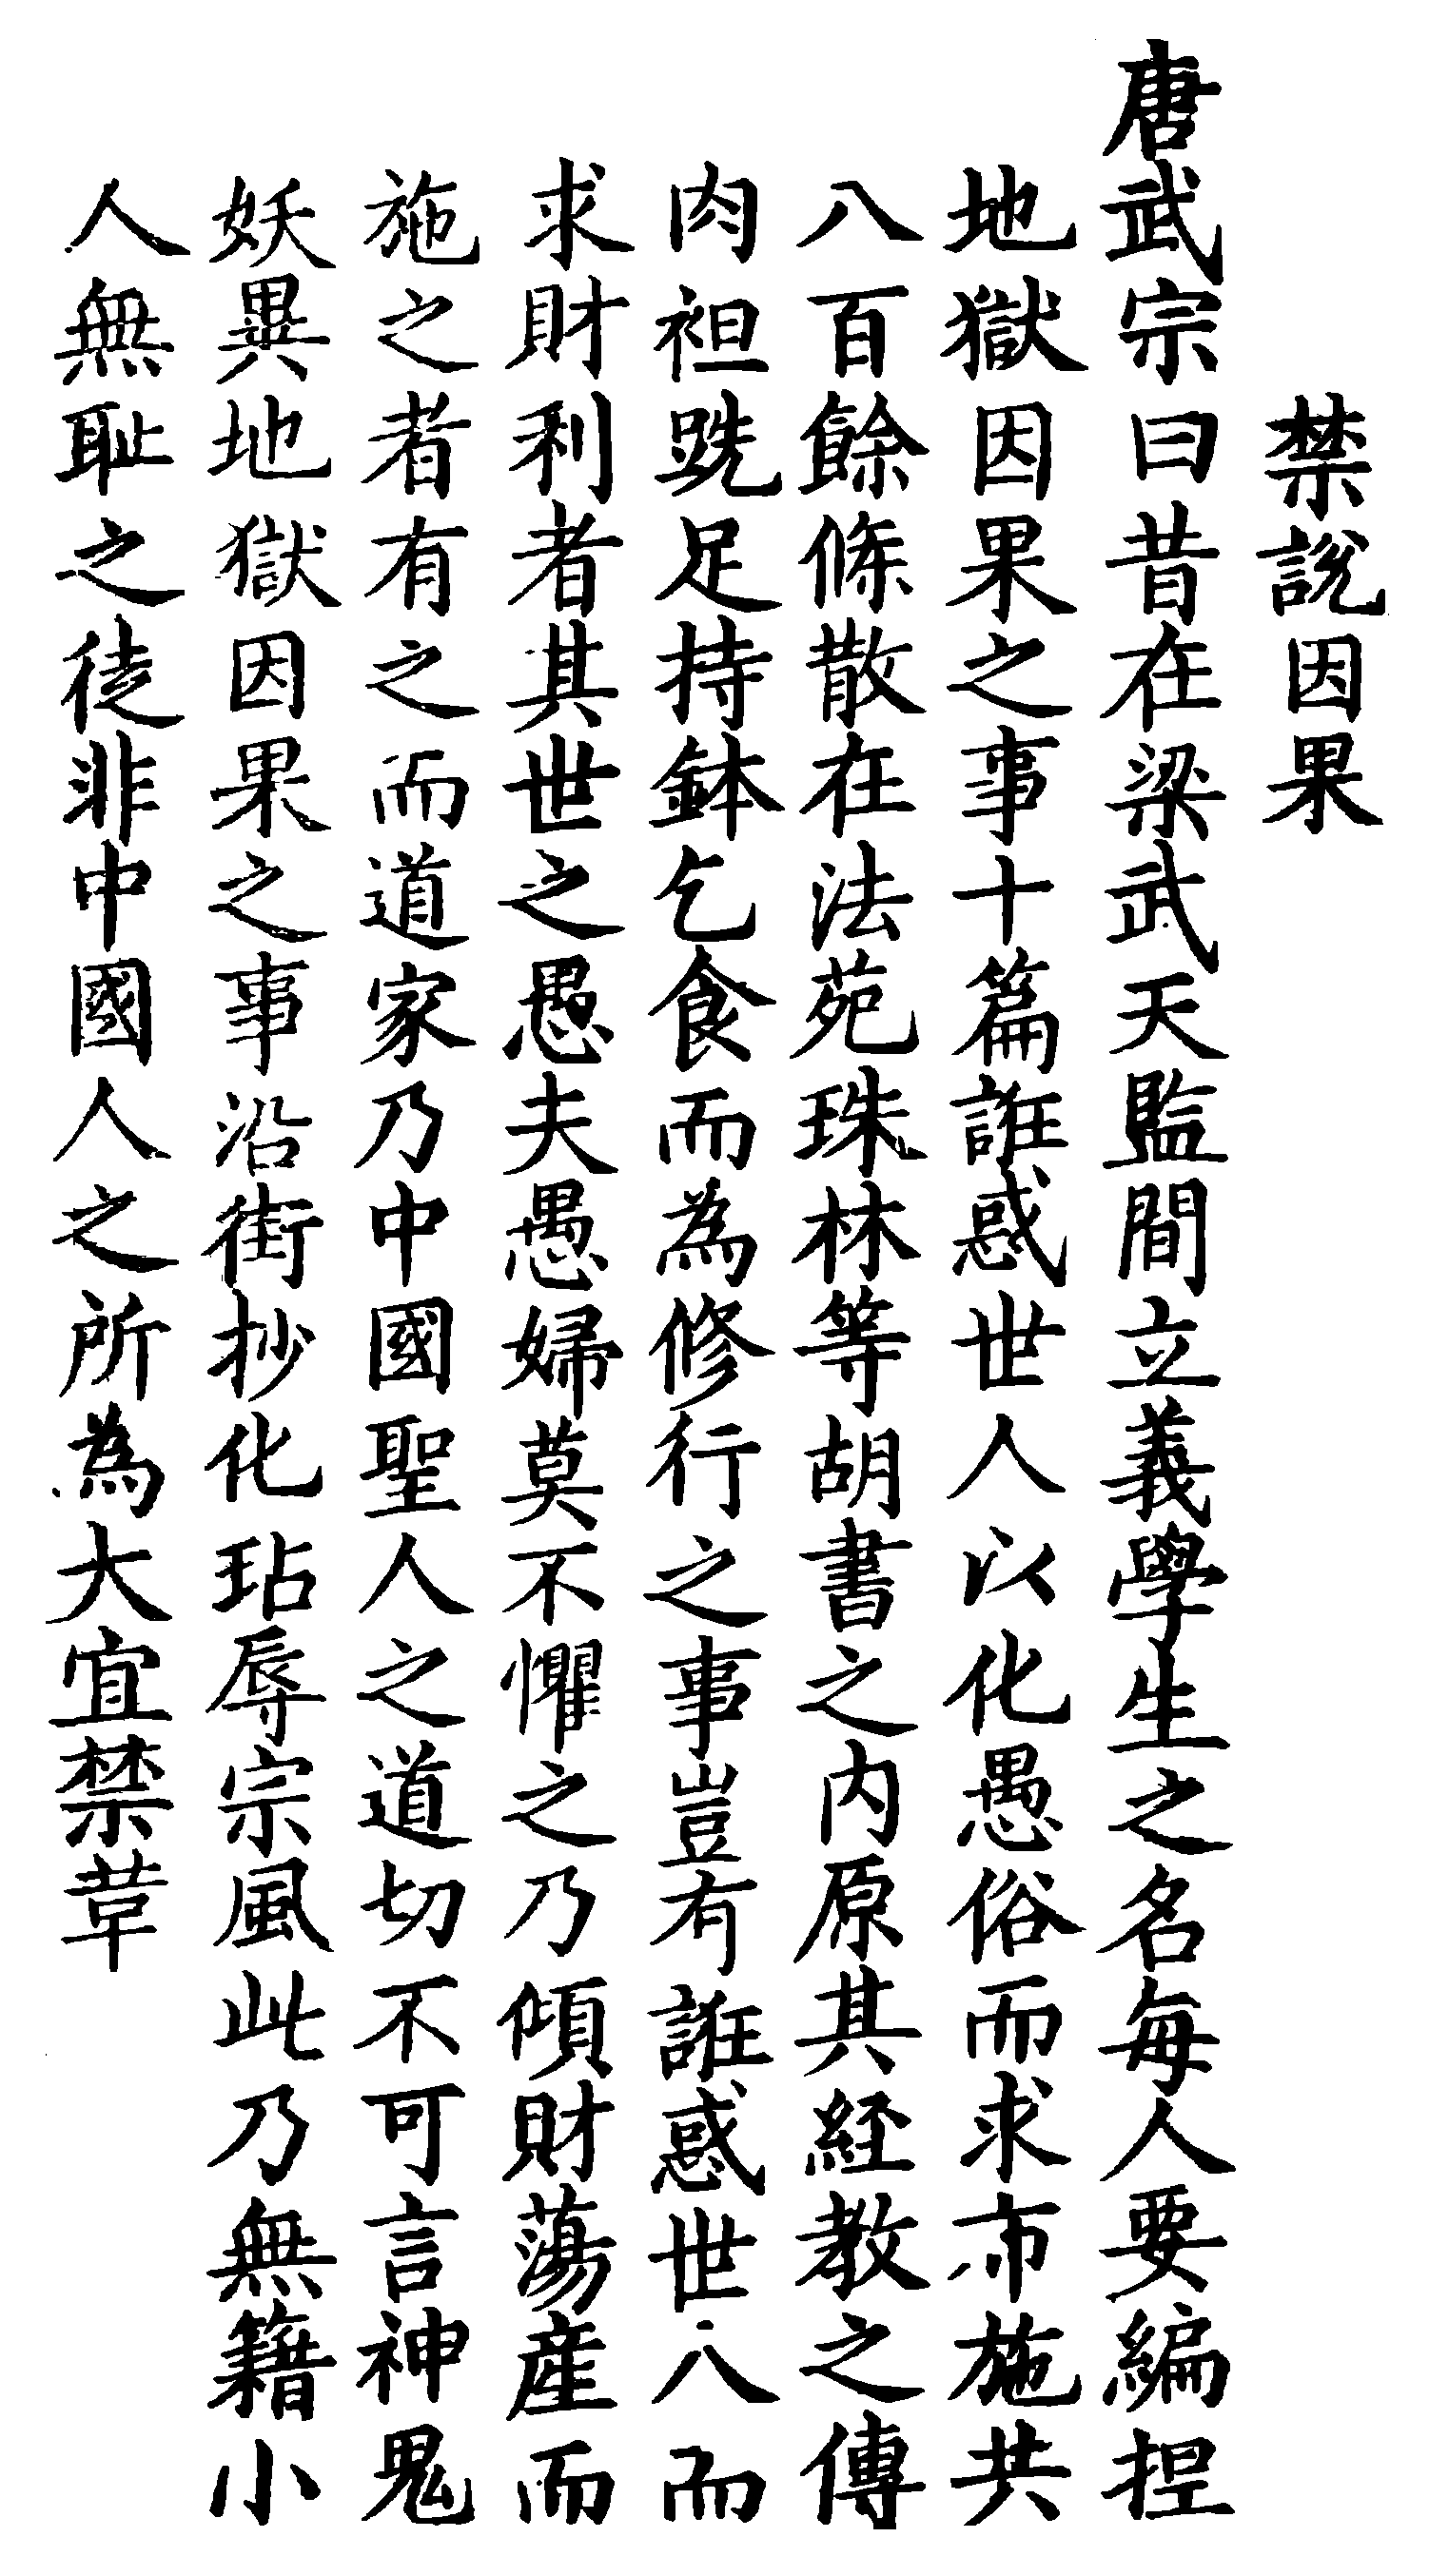 禁說因果
唐武宗曰昔在梁武天監間立義學生之名每人要編捏
地獄因果之事十篇誑惑世人以化愚俗而求布施共
八百餘條散在法苑珠林等胡書之内原其経教之傳
肉袒跣足持鉢乞食而為修行之事豈有誑惑世人而
求財利者其世之愚夫愚婦莫不懼之乃傾財蕩産而
施之者有之而道家乃中國聖人之道切不可言神鬼
妖異地獄因果之事沿街抄化玷辱宗風此乃無籍小
人無恥之徒非中國人之所為大宜禁革